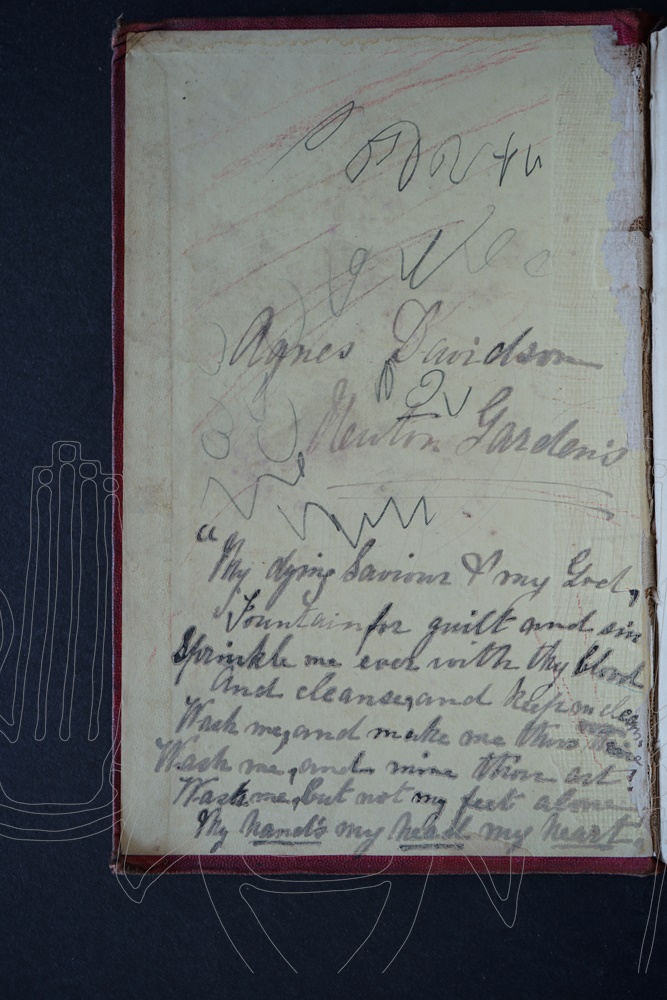 Agnes Davidson
Newton Gardens
"My dying Saviour & my God,
Fountain for guilt and sin
Sprinkle me ever with thy blood
And cleanse, and keep me clean.
Wash me, and make me thus
Wash me, and mine thou art!
Wash me, but not my feet alone
My hand's my head my heart.